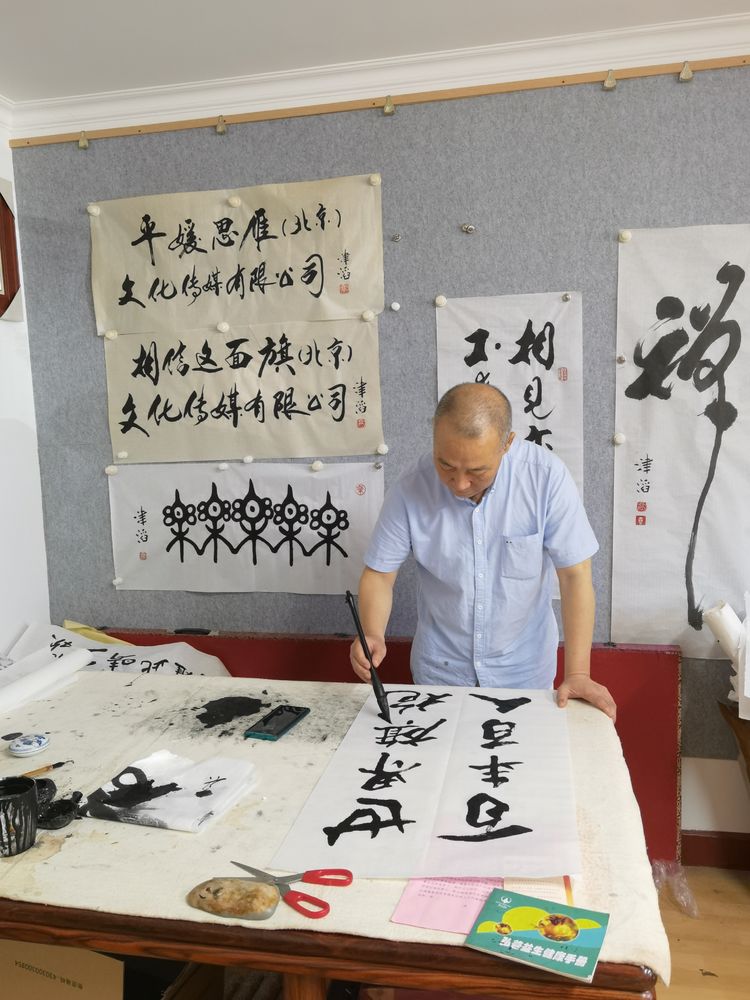 平媛思雁(北京)
文化传媒有限公司
津滔
相信这面旗(北京)
文化传媒有限公司
津滔
津滔
相见
禅
津滔
世界旗袍
百年百人
益生健康手册